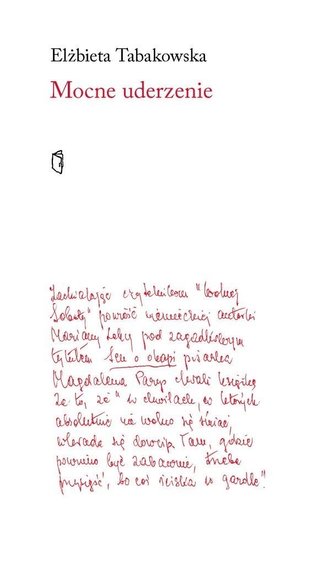 Elżbieta Tabakowska
Mocne uderzenie
Zachwalając czytelnikom "Wolnej
Soboty" powieść niemieckiej autorki
Mariany Leky pod zagadkowym
tytułem Sen o okapi pisarka
Magdalena Parys chwali książkę
za to, że "w chwilach, w których
absolutnie nie wolno się śmiać,
wkrada się dowcip. Tam, gdzie
powinno być zabawnie, trzeba
przysiąść, bo coś ściska w gardle".